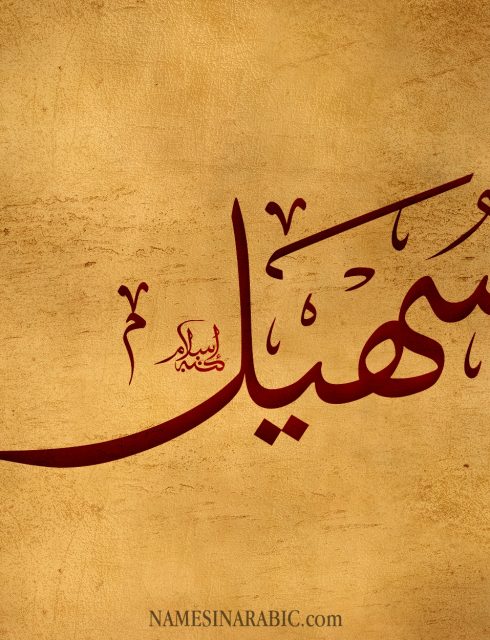 سُهيل
كتبه إسلام
NAMESINARABIC.com